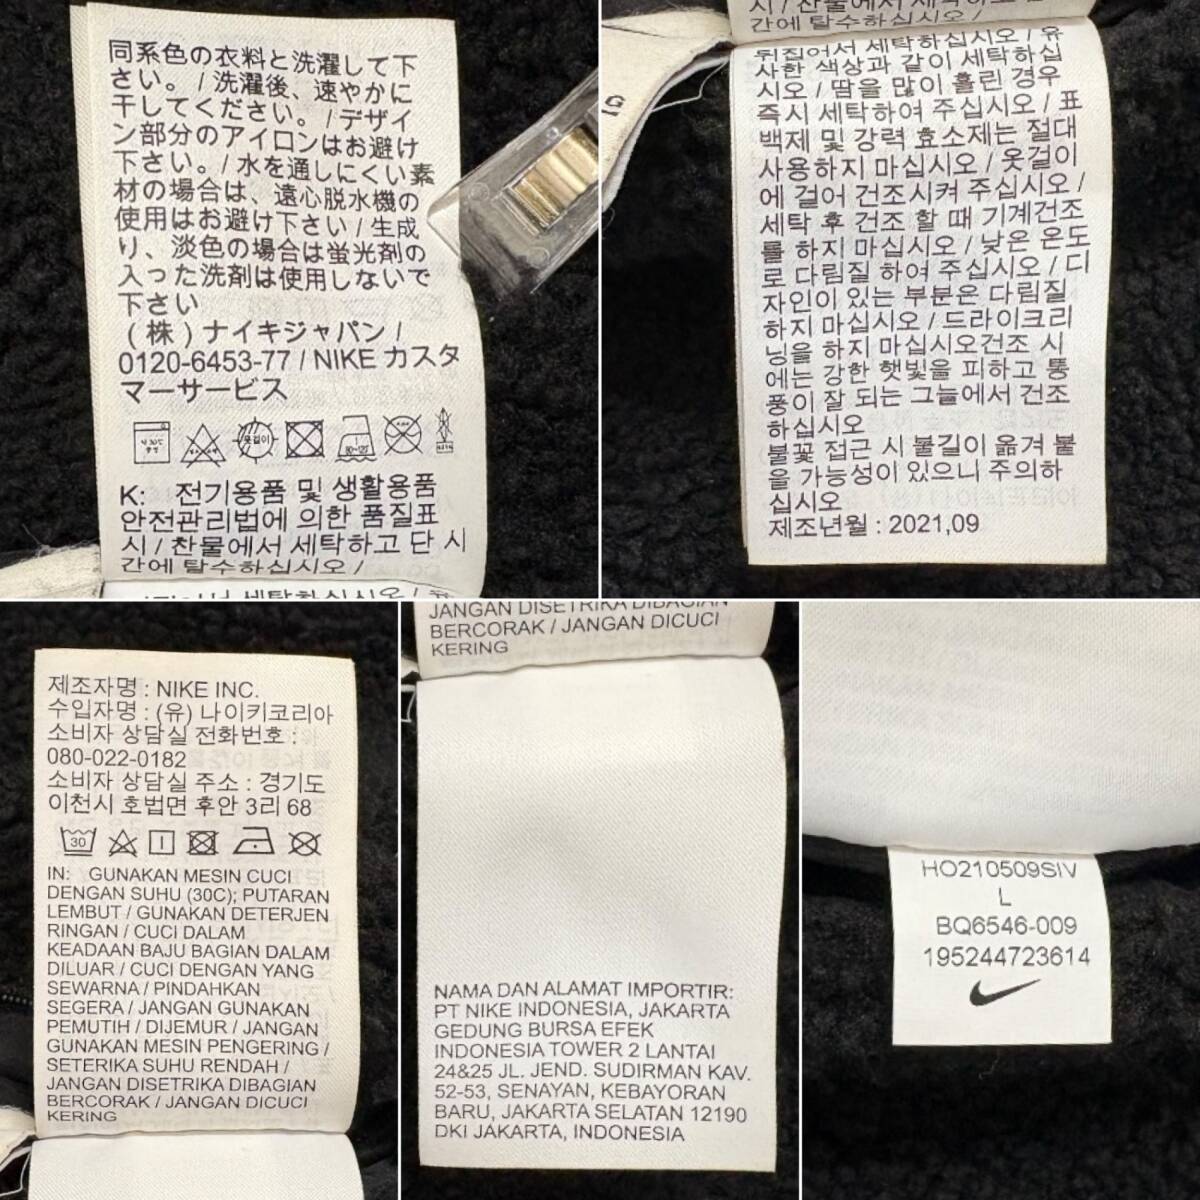 同系色の衣料と洗濯して下
さい。/ 洗濯後、速やかに
干してください。/ デザイ
ン部分のアイロンはお避け
下さい。/ 水を通しにくい素
材の場合は、遠心脱水機の
使用はお避け下さい / 生成
り、淡色の場合は蛍光剤の
入った洗剤は使用しないで
下さい
(株) ナイキジャパン /
0120-6453-77 / NIKE カスタ
マーサービス
옷걸이
K: 전기용품 및 생활용품
안전관리법에 의한 품질표
시 / 찬물에서 세탁하고 단 시
간에 탈수하십시오 /
시 / 찬물에서 세탁하고 단 시
간에 탈수하십시오 /
뒤집어서 세탁하십시오 / 유
사한 색상과 같이 세탁하십
시오 / 땀을 많이 흘린 경우
즉시 세탁하여 주십시오 / 표
백제 및 강력 효소제는 절대
사용하지 마십시오 / 옷걸이
에 걸어 건조시켜 주십시오 /
세탁 후 건조 할 때 기계건조
를 하지 마십시오 / 낮은 온도
로 다림질 하여 주십시오 / 디
자인이 있는 부분은 다림질
하지 마십시오 / 드라이크리
닝을 하지 마십시오건조 시
에는 강한 햇빛을 피하고 통
풍이 잘 되는 그늘에서 건조
하십시오
불꽃 접근 시 불길이 옮겨 붙
을 가능성이 있으니 주의하
십시오
제조년월 : 2021,09
제조자명 : NIKE INC.
수입자명 : (유) 나이키코리아
소비자 상담실 전화번호 :
080-022-0182
소비자 상담실 주소 : 경기도
이천시 호법면 후안 3리 68
30
IN: GUNAKAN MESIN CUCI
DENGAN SUHU (30C); PUTARAN
LEMBUT / GUNAKAN DETERJEN
RINGAN / CUCI DALAM
KEADAAN BAJU BAGIAN DALAM
DILUAR / CUCI DENGAN YANG
SEWARNA / PINDAHKAN
SEGERA / JANGAN GUNAKAN
PEMUTIH / DIJEMUR / JANGAN
GUNAKAN MESIN PENGERING /
SETERIKA SUHU RENDAH /
JANGAN DISETRIKA DIBAGIAN
BERCORAK / JANGAN DICUCI
KERING
JANGAN DISETRIKA DIBAGIAN
BERCORAK / JANGAN DICUCI
KERING
NAMA DAN ALAMAT IMPORTIR:
PT NIKE INDONESIA, JAKARTA
GEDUNG BURSA EFEK
INDONESIA TOWER 2 LANTAI
24&25 JL. JEND. SUDIRMAN KAV.
52-53, SENAYAN, KEBAYORAN
BARU, JAKARTA SELATAN 12190
DKI JAKARTA, INDONESIA
HO210509SIV
L
BQ6546-009
195244723614